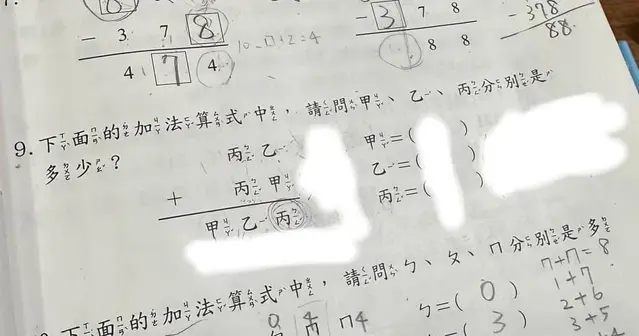 8
- 3 7 8
4 7 4
10-□+2=4
- 3 7 8
8 8
- 378
88
9. 下面的加法算式中，請問甲、乙、丙分別是
多少？
丙 乙
+ 丙 甲
甲 乙 丙
甲=( )
乙=( )
丙=( )
下面的加法算式中，請問ㄅ、ㄆ、ㄇ分別是多
0 4
ㄇ4
ㄅ=( 0 )
=( 3 )
ㄇ+ㄇ=8
1+7
2+6
3+5